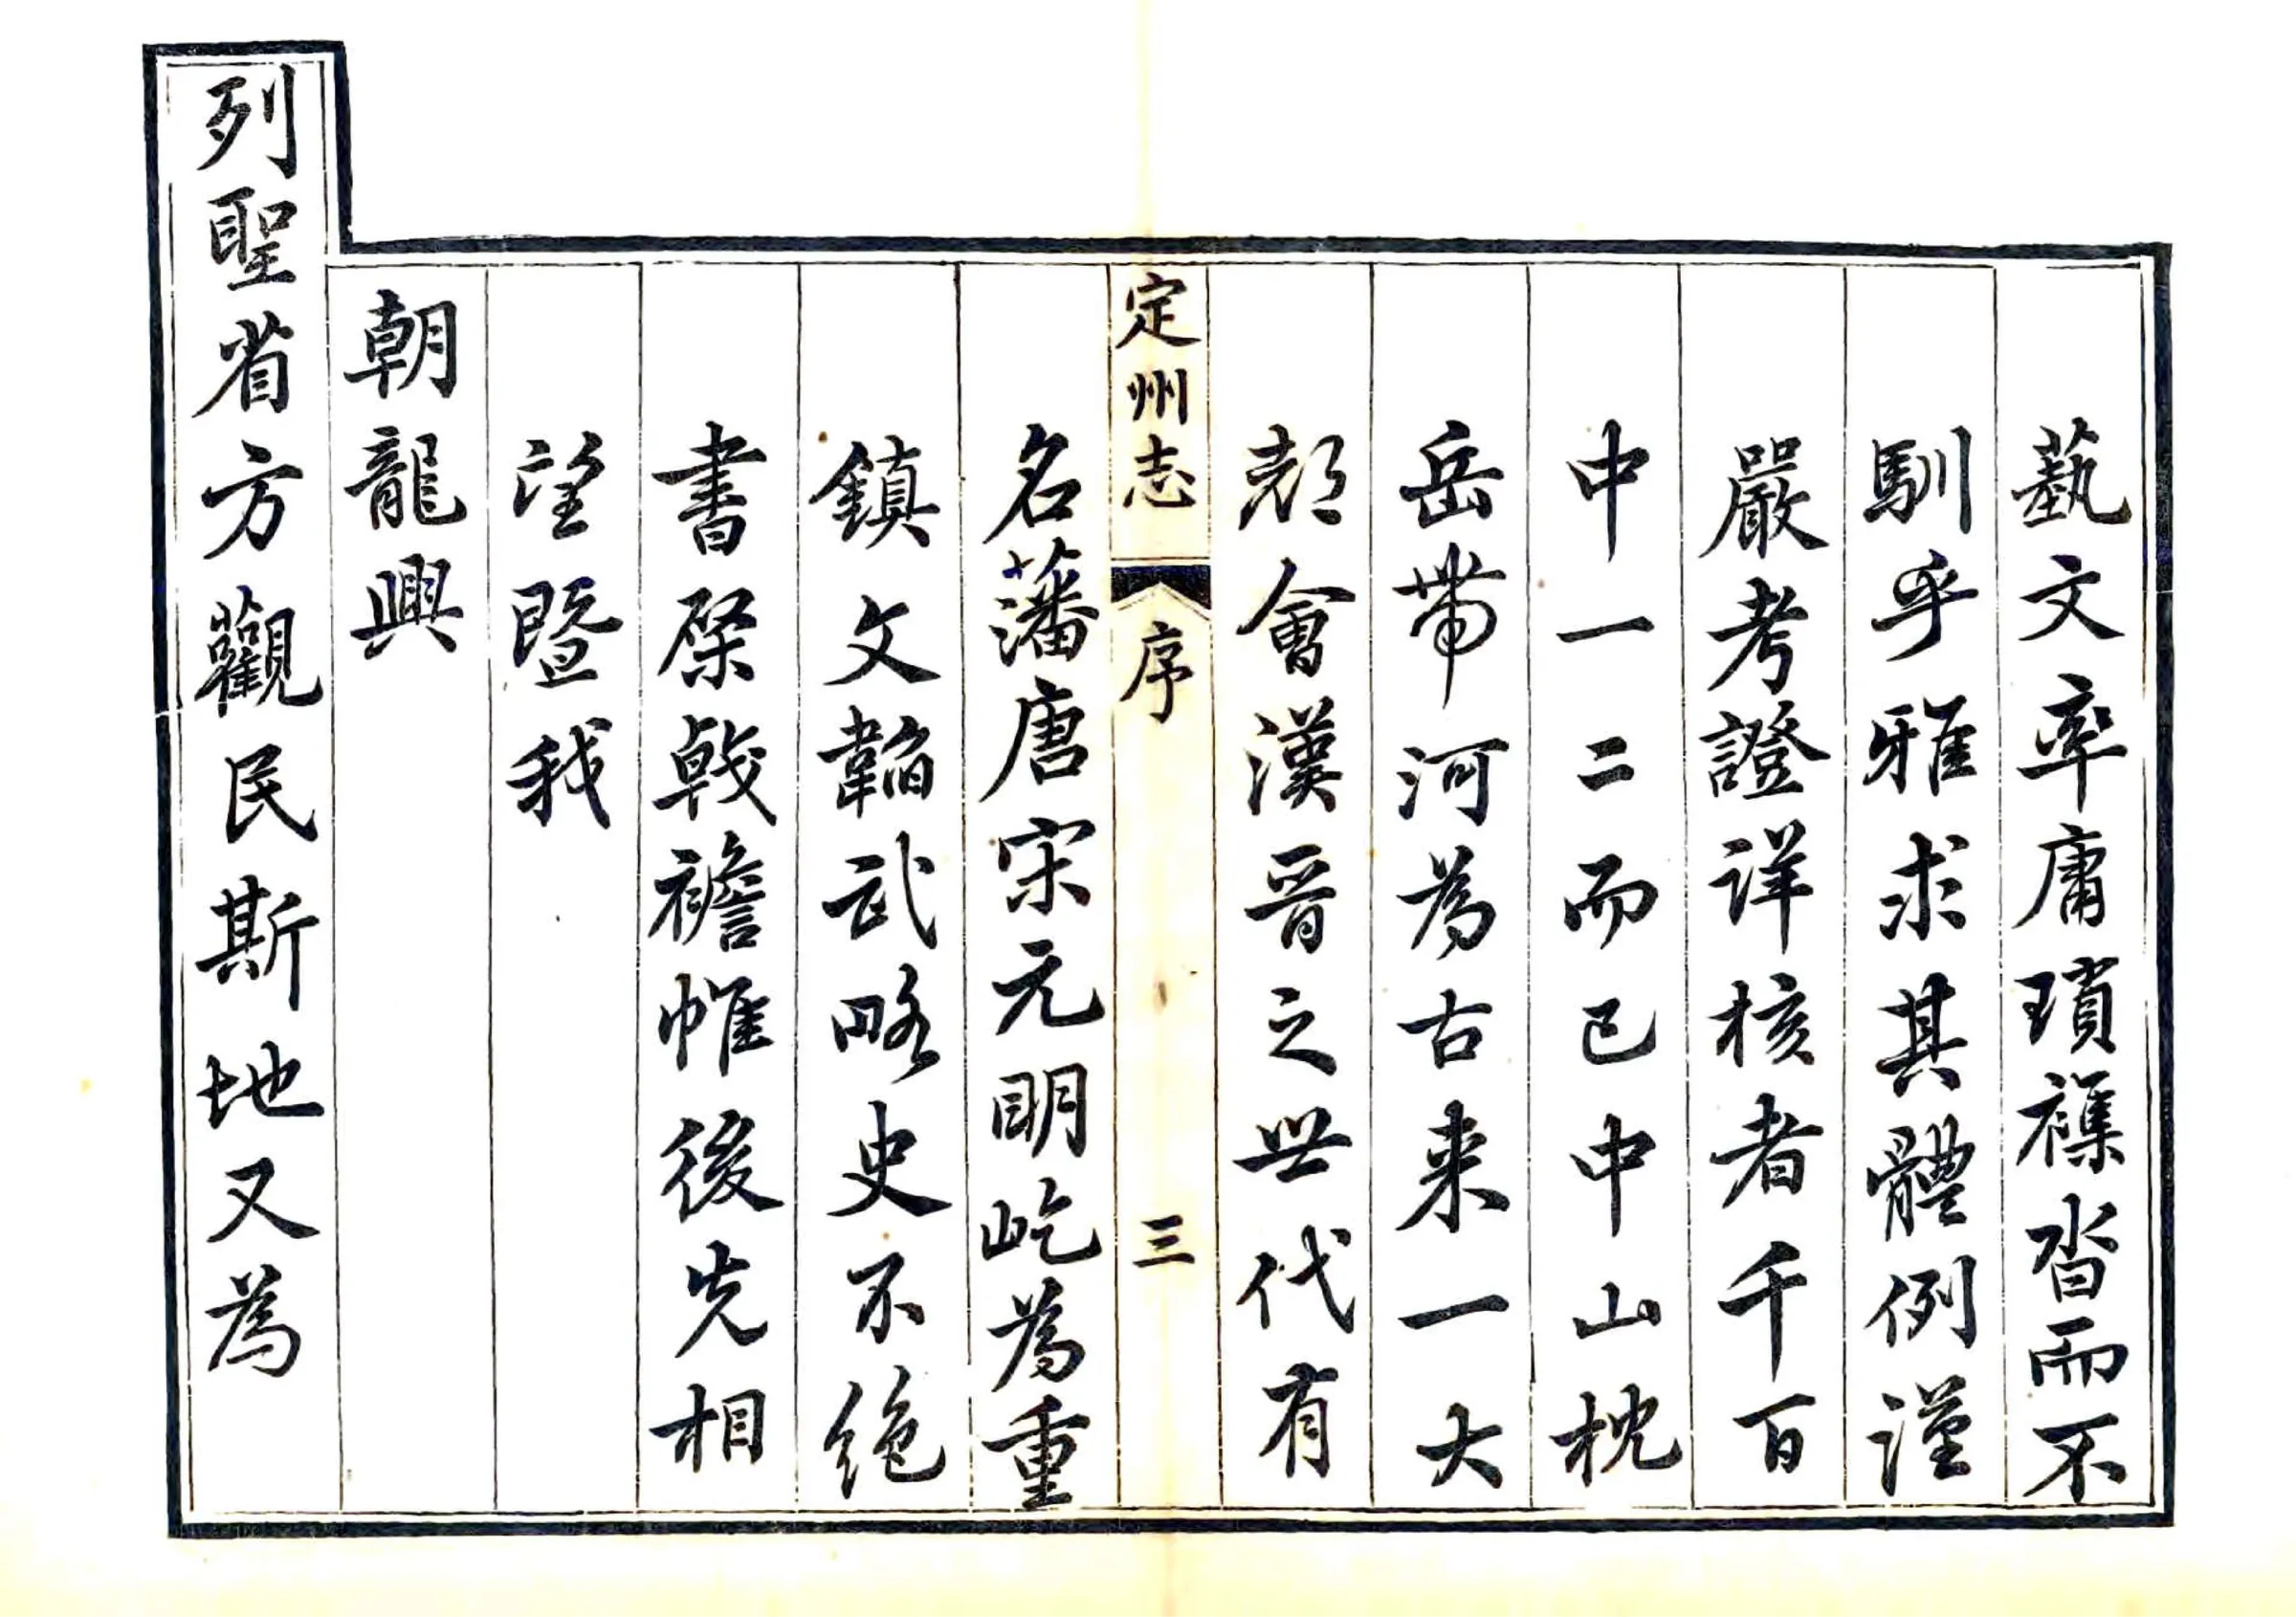 藝文率庸瑣襍沓而不
馴乎雅求其體例謹
嚴考證詳核者千百
中一二而已中山枕
岳帶河為古来一大
都會漢晉之世代有
定州志 序 三
名藩唐宋元明屹為重
鎮文韜武略史不絶
書棨戟襜帷後先相
望暨我
朝龍興
列聖省方觀民斯地又為